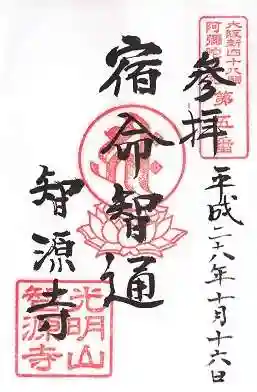 大阪新四十八願
阿彌陀
第五番
參拝
平成二十八年十月十六日
宿命智通
智源寺
光明山
智源寺